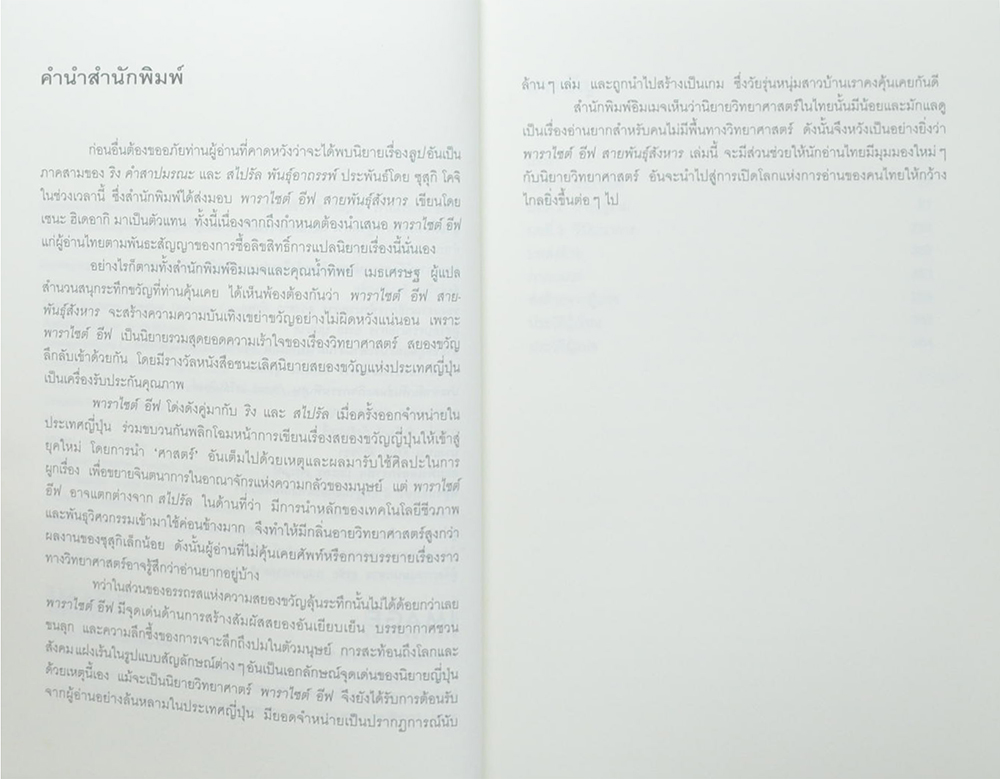 คำนำสำนักพิมพ์
ก่อนอื่นต้องขออภัยท่านผู้อ่านที่คาดหวังว่าจะได้พบนิยายเรื่องลูปอันเป็น
ภาคสามของ ริง คำสาปมรณะ และ สไปรัล พันธุ์อาถรรพ์ ประพันธ์โดย ซุสุกิ โคจิ
ในช่วงเวลานี้ ซึ่งสำนักพิมพ์ได้ส่งมอบ พาราไซต์ อีฟ สายพันธุ์สังหาร เขียนโดย
เซนะ ฮิเดอากิ มาเป็นตัวแทน ทั้งนี้เนื่องจากถึงกำหนดต้องนำเสนอ พาราไซต์ อีฟ
แก่ผู้อ่านไทยตามพันธะสัญญาของการซื้อลิขสิทธิ์การแปลนิยายเรื่องนี้นั่นเอง
อย่างไรก็ตามทั้งสำนักพิมพ์อิมเมจและคุณน้ำทิพย์ เมธเศรษฐ ผู้แปล
สำนวนสนุกระทึกขวัญที่ท่านคุ้นเคย ได้เห็นพ้องต้องกันว่า พาราไซต์ อีฟ สาย-
พันธุ์สังหาร จะสร้างความความบันเทิงเขย่าขวัญอย่างไม่ผิดหวังแน่นอน เพราะ
พาราไซต์ อีฟ เป็นนิยายรวมสุดยอดความเร้าใจของเรื่องวิทยาศาสตร์ สยองขวัญ
ลึกลับเข้าด้วยกัน โดยมีรางวัลหนังสือชนะเลิศนิยายสยองขวัญแห่งประเทศญี่ปุ่น
เป็นเครื่องรับประกันคุณภาพ
พาราไซต์ อีฟ โด่งดังคู่มากับ ริง และ สไปรัล เมื่อครั้งออกจำหน่ายใน
ประเทศญี่ปุ่น ร่วมขบวนกันพลิกโฉมหน้าการเขียนเรื่องสยองขวัญญี่ปุ่นให้เข้าสู่
ยุคใหม่ โดยการนำ 'ศาสตร์' อันเต็มไปด้วยเหตุและผลมารับใช้ศิลปะในการ
ผูกเรื่อง เพื่อขยายจินตนาการในอาณาจักรแห่งความกลัวของมนุษย์ แต่ พาราไซต์
อีฟ อาจแตกต่างจาก สไปรัล ในด้านที่ว่า มีการนำหลักของเทคโนโลยีชีวภาพ
และพันธุวิศวกรรมเข้ามาใช้ค่อนข้างมาก จึงทำให้มีกลิ่นอายวิทยาศาสตร์สูงกว่า
ผลงานของซุสุกิเล็กน้อย ดังนั้นผู้อ่านที่ไม่คุ้นเคยศัพท์หรือการบรรยายเรื่องราว
ทางวิทยาศาสตร์อาจรู้สึกว่าอ่านยากอยู่บ้าง
ทว่าในส่วนของอรรถรสแห่งความสยองขวัญลุ้นระทึกนั้นไม่ได้ด้อยกว่าเลย
พาราไซต์ อีฟ มีจุดเด่นด้านการสร้างสัมผัสสยองอันเยียบเย็น บรรยากาศชวน
ขนลุก และความลึกซึ้งของการเจาะลึกถึงปมในตัวมนุษย์ การสะท้อนถึงโลกและ
สังคมแฝงเร้นในรูปแบบสัญลักษณ์ต่าง ๆ อันเป็นเอกลักษณ์จุดเด่นของนิยายญี่ปุ่น
ด้วยเหตุนี้เอง แม้จะเป็นนิยายวิทยาศาตร์ พาราไซต์ อีฟ จึงยังได้รับการต้อนรับ
จากผู้อ่านอย่างล้นหลามในประเทศญี่ปุ่น มียอดจำหน่ายเป็นปรากฏการณ์นับ
ล้าน ๆ เล่ม และถูกนำไปสร้างเป็นเกม ซึ่งวัยรุ่นหนุ่มสาวบ้านเราคงคุ้นเคยกันดี
สำนักพิมพ์อิมเมจเห็นว่านิยายวิทยาศาสตร์ในไทยนั้นมีน้อยและมักแลดู
เป็นเรื่องอ่านยากสำหรับคนไม่มีพื้นทางวิทยาศาสตร์ ดังนั้นจึงหวังเป็นอย่างยิ่งว่า
พาราไซต์ อีฟ สายพันธุ์สังหาร เล่มนี้ จะมีส่วนช่วยให้นักอ่านไทยมีมุมมองใหม่ ๆ
กับนิยายวิทยาศาสตร์ อันจะนำไปสู่การเปิดโลกแห่งการอ่านของคนไทยให้กว้าง
ไกลยิ่งขึ้นต่อ ๆ ไป